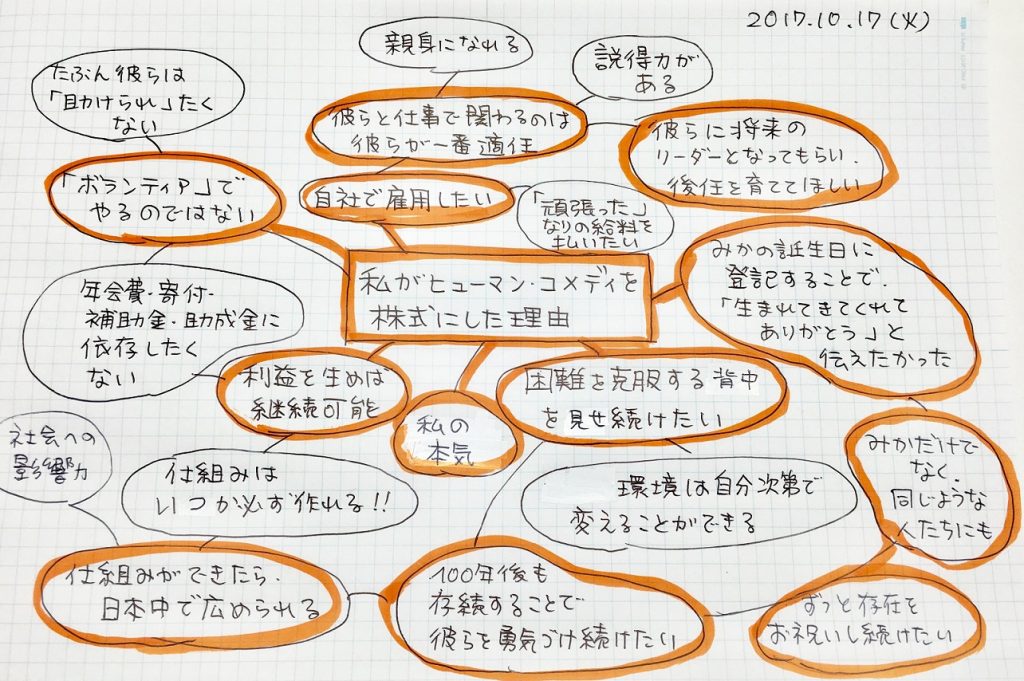 2017.10.17(火)
親身になれる
説得力が
ある
たぶん彼らは
「助けられ」たく
ない
彼らと仕事で関わるのは
彼らが一番適任
彼らに将来の
リーダーとなってもらい、
後任を育ててほしい
「ボランティア」で
やるのではない
自社で雇用したい
「頑張った」
なりの給料を
払いたい
私がヒューマン・コメディを
株式にした理由
みかの誕生日に
登記することで、
「生まれてきてくれて
ありがとう」と
伝えたかった
年会費・寄付・
補助金・助成金に
依存したく
ない
利益を生めば
継続可能を
私の
本気
困難を克服する背中
を見せ続けたい
社会への
影響力
仕組みは
いつか必ず作れる!!
環境は自分次第で
変えることができる
みかだけで
なく、
同じような
人たちにも
仕組みができたら、
日本中で広められる
100年後も
存続することで
彼らを勇気づけ続けたい
ずっと存在を
お祝いし続けたい